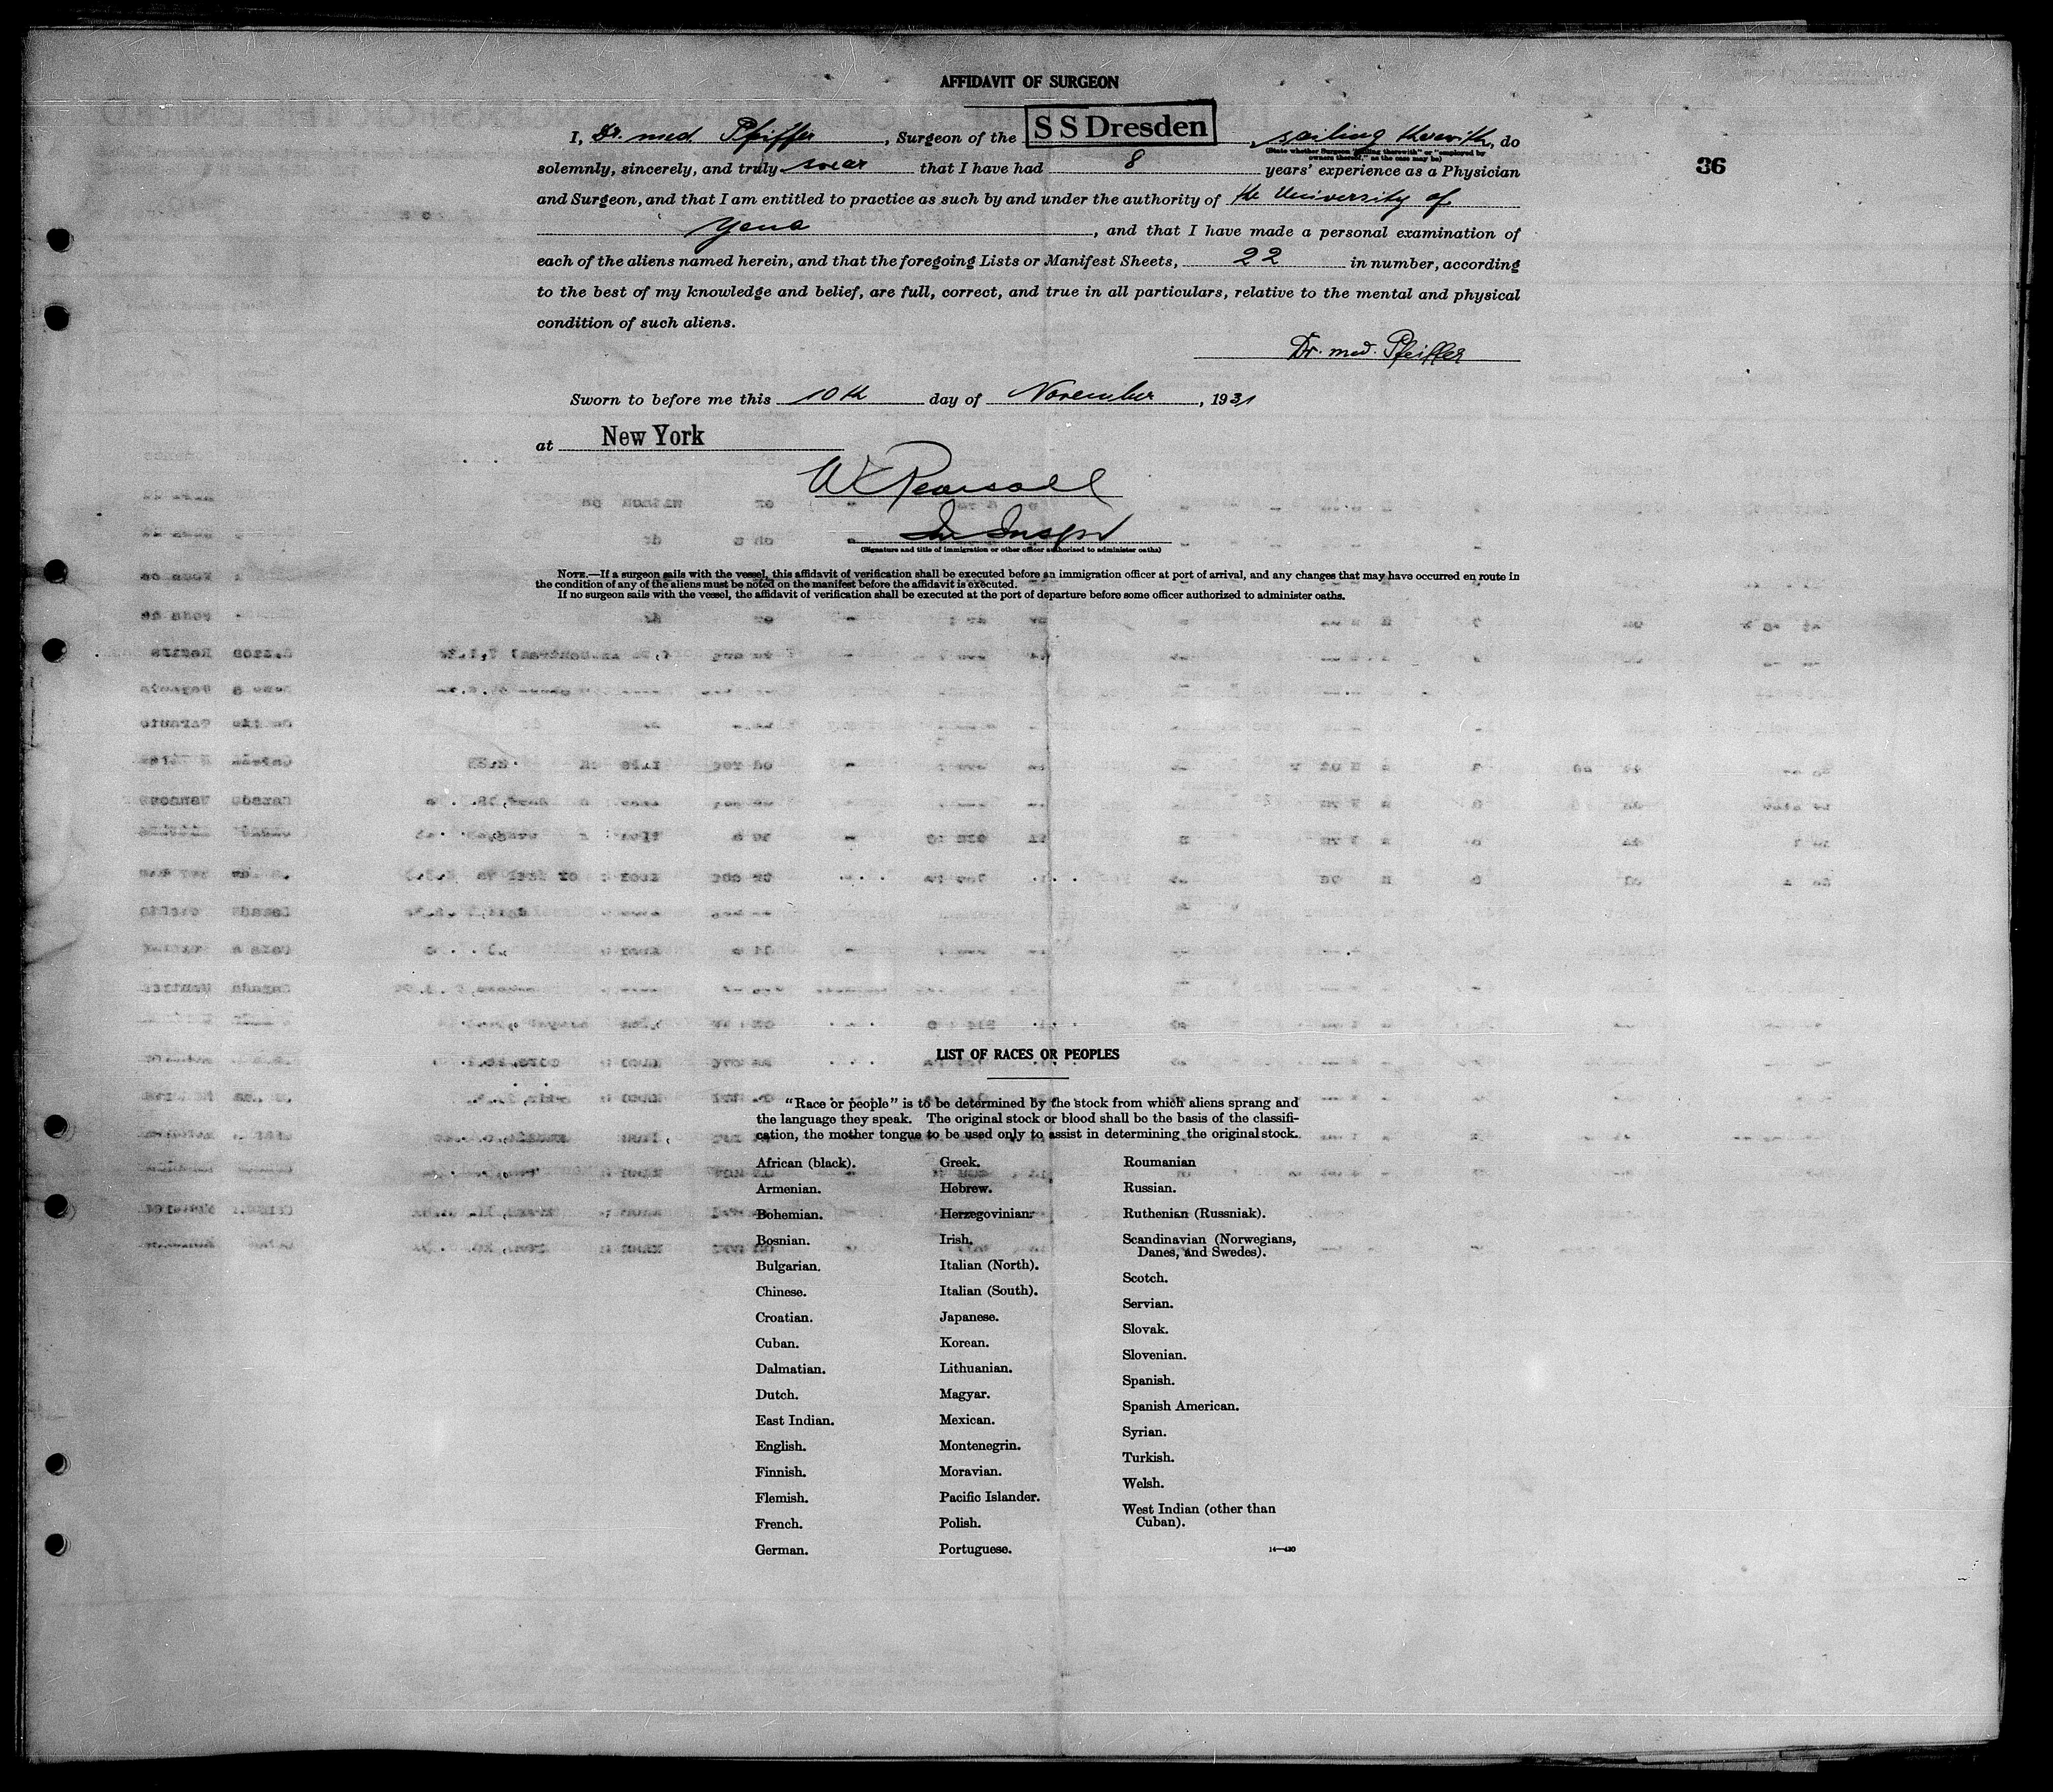 AFFIDAVIT OF SURGEON
I, Dr. med Pfeiffer, Surgeon of the SS Dresden sailing therewith, do
(State whether Surgeon "sailing therewith" or "employed by
owners thereof," as the case may be)
36
solemnly, sincerely, and truly swear that I have had 8 years' experience as a Physician
and Surgeon, and that I am entitled to practice as such by and under the authority of the University of
Yena, and that I have made a personal examination of
each of the aliens named herein, and that the foregoing Lists or Manifest Sheets, 22 in number, according
to the best of my knowledge and belief, are full, correct, and true in all particulars, relative to the mental and physical
condition of such aliens.
Dr. med. Pfeiffer
Sworn to before me this 10th day of November, 1931
at New York
W Pearsall
Im Inspr
(Signature and title of immigration or other officer authorized to administer oaths)
NOTE.—If a surgeon sails with the vessel, this affidavit of verification shall be executed before an immigration officer at port of arrival, and any changes that may have occurred en route in
the condition of any of the aliens must be noted on the manifest before the affidavit is executed.
If no surgeon sails with the vessel, the affidavit of verification shall be executed at the port of departure before some officer authorized to administer oaths.
LIST OF RACES OR PEOPLES
"Race or people" is to be determined by the stock from which aliens sprang and
the language they speak. The original stock or blood shall be the basis of the classifi-
cation, the mother tongue to be used only to assist in determining the original stock.
African (black).
Armenian.
Bohemian.
Bosnian.
Bulgarian.
Chinese.
Croatian.
Cuban.
Dalmatian.
Dutch.
East Indian.
English.
Finnish.
Flemish.
French.
German.
Greek.
Hebrew.
Herzegovinian.
Irish.
Italian (North).
Italian (South).
Japanese.
Korean.
Lithuanian.
Magyar.
Mexican.
Montenegrin.
Moravian.
Pacific Islander.
Polish.
Portuguese.
Roumanian
Russian.
Ruthenian (Russniak).
Scandinavian (Norwegians,
Danes, and Swedes).
Scotch.
Servian.
Slovak.
Slovenian.
Spanish.
Spanish American.
Syrian.
Turkish.
Welsh.
West Indian (other than
Cuban).
14—430